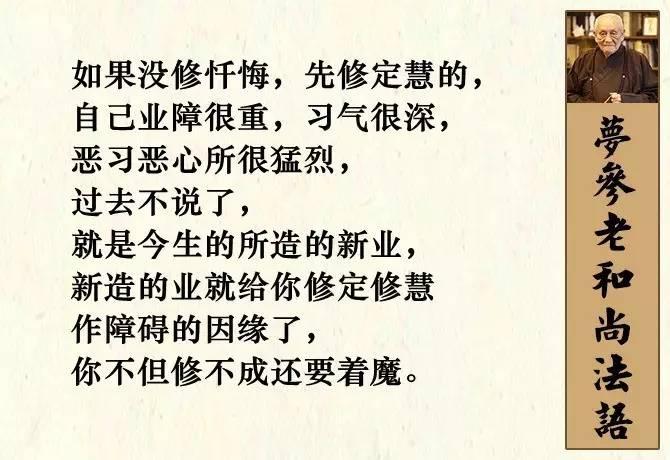 如果没修忏悔，先修定慧的，
自己业障很重，习气很深，
恶习恶心所很猛烈，
过去不说了，
就是今生的所造的新业，
新造的业就给你修定修慧
作障碍的因缘了，
你不但修不成还要着魔。
夢參老和尚法語